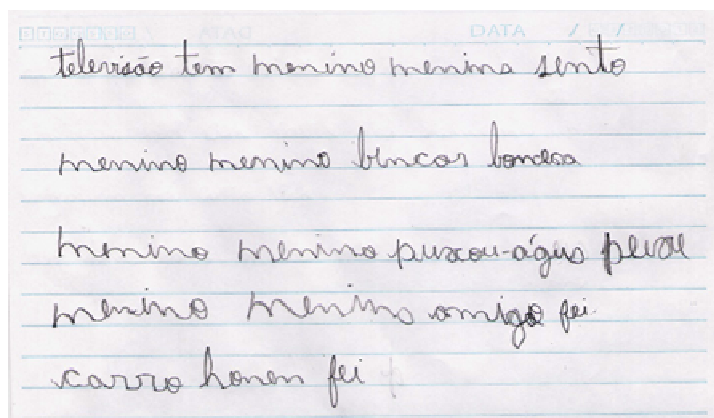 televisão tem menino menina sento
menino menino bincar boneca
menino menino puxou-água peixe
menino menino amigo fei
carro honen fei